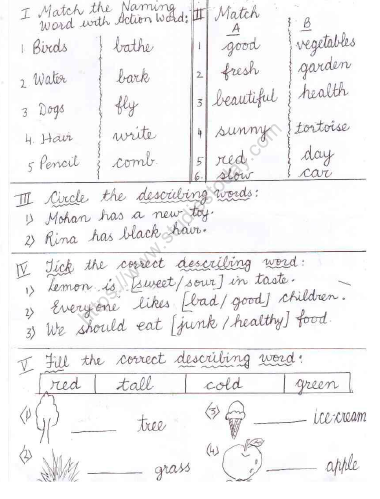 I Match the Naming
Word with Action Word:
1 Birds bathe
2 Water bark
3 Dogs fly
4. Hair write
5 Pencil comb
II Match
A B
1 good vegetables
2 fresh garden
3 beautiful health
4 sunny tortoise
5 red day
6. slow car
III Circle the describing words:
1) Mohan has a new toy.
2) Rina has black hair.
IV Tick the correct describing word:
1) Lemon is [sweet/sour] in taste.
2) Everyone likes [bad/good] children.
3) We should eat [junk/healthy] food.
V Fill the correct describing word:
red tall cold green
(1) ______ tree
(3) ______ ice-cream
(2) ______ grass
(4) ______ apple